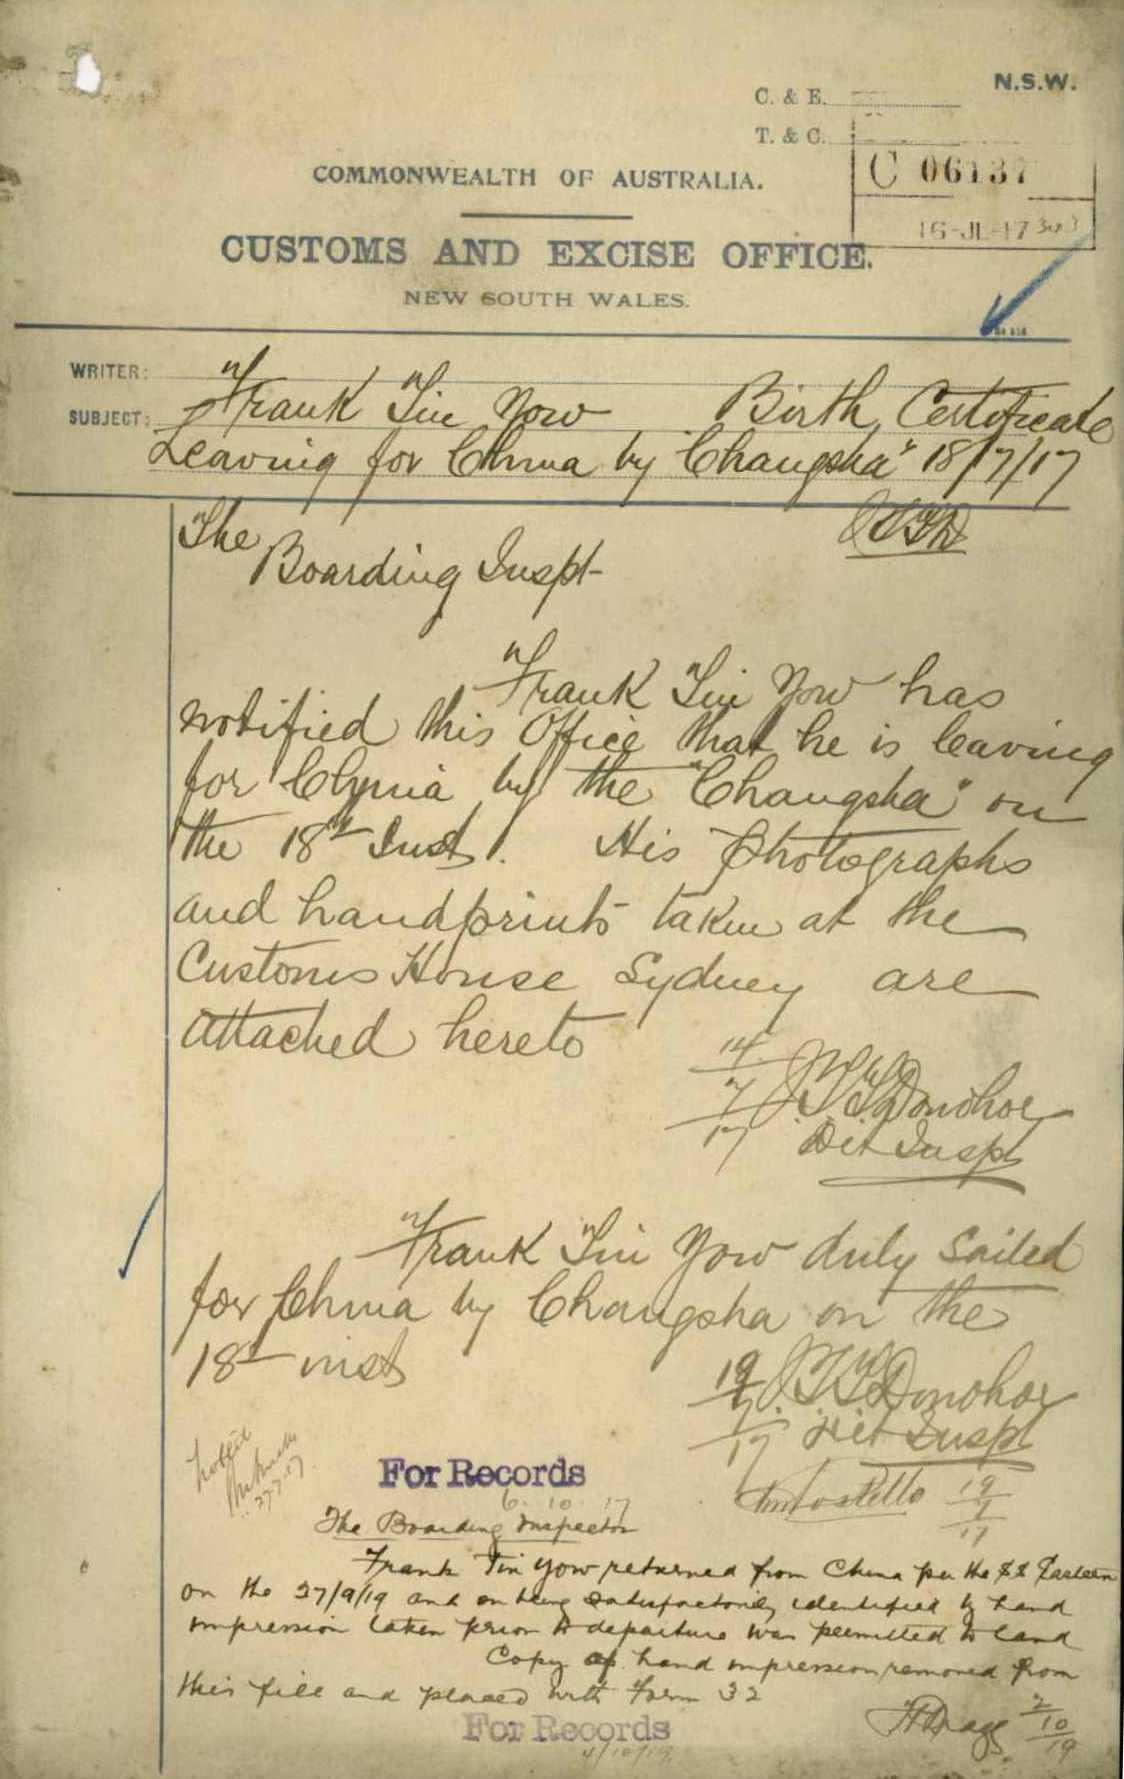 N.S.W.
C. & E.
T. & C.
C 06137
16-JL-17
COMMONWEALTH OF AUSTRALIA.
CUSTOMS AND EXCISE OFFICE.
NEW SOUTH WALES.
WRITER:
SUBJECT: Frank Tin Yow Birth Certificate
Leaving for China by "Changsha" 18/7/17
The
Boarding Inspt-
Frank Tin Yow has
notified this Office that he is leaving
for China by the "Changsha" on
the 18th Inst. His Photographs
and handprints taken at the
Customs House Sydney are
attached hereto
14/7/17 Donohoe
Det Inspt
Frank Tin Yow duly sailed
for China by Changsha on the
18th inst
19/7/17 Donohoe
Det Inspt
noted
27.7.17
Costello 19/7/17
For Records
6. 10. 17
The Boarding Inspector
Frank Tin Yow returned from China per the SS Eastern
on the 27/9/19 and on being satisfactorily identified by hand
impression taken prior to departure was permitted to land
Copy of hand impression removed from
this file and placed with Form 32
2/10/19
For Records
4/10/19